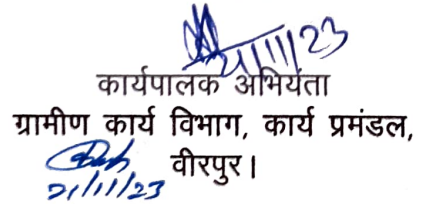 21/11/23
कार्यपालक अभियंता
ग्रामीण कार्य विभाग, कार्य प्रमंडल,
वीरपुर।
21/11/23